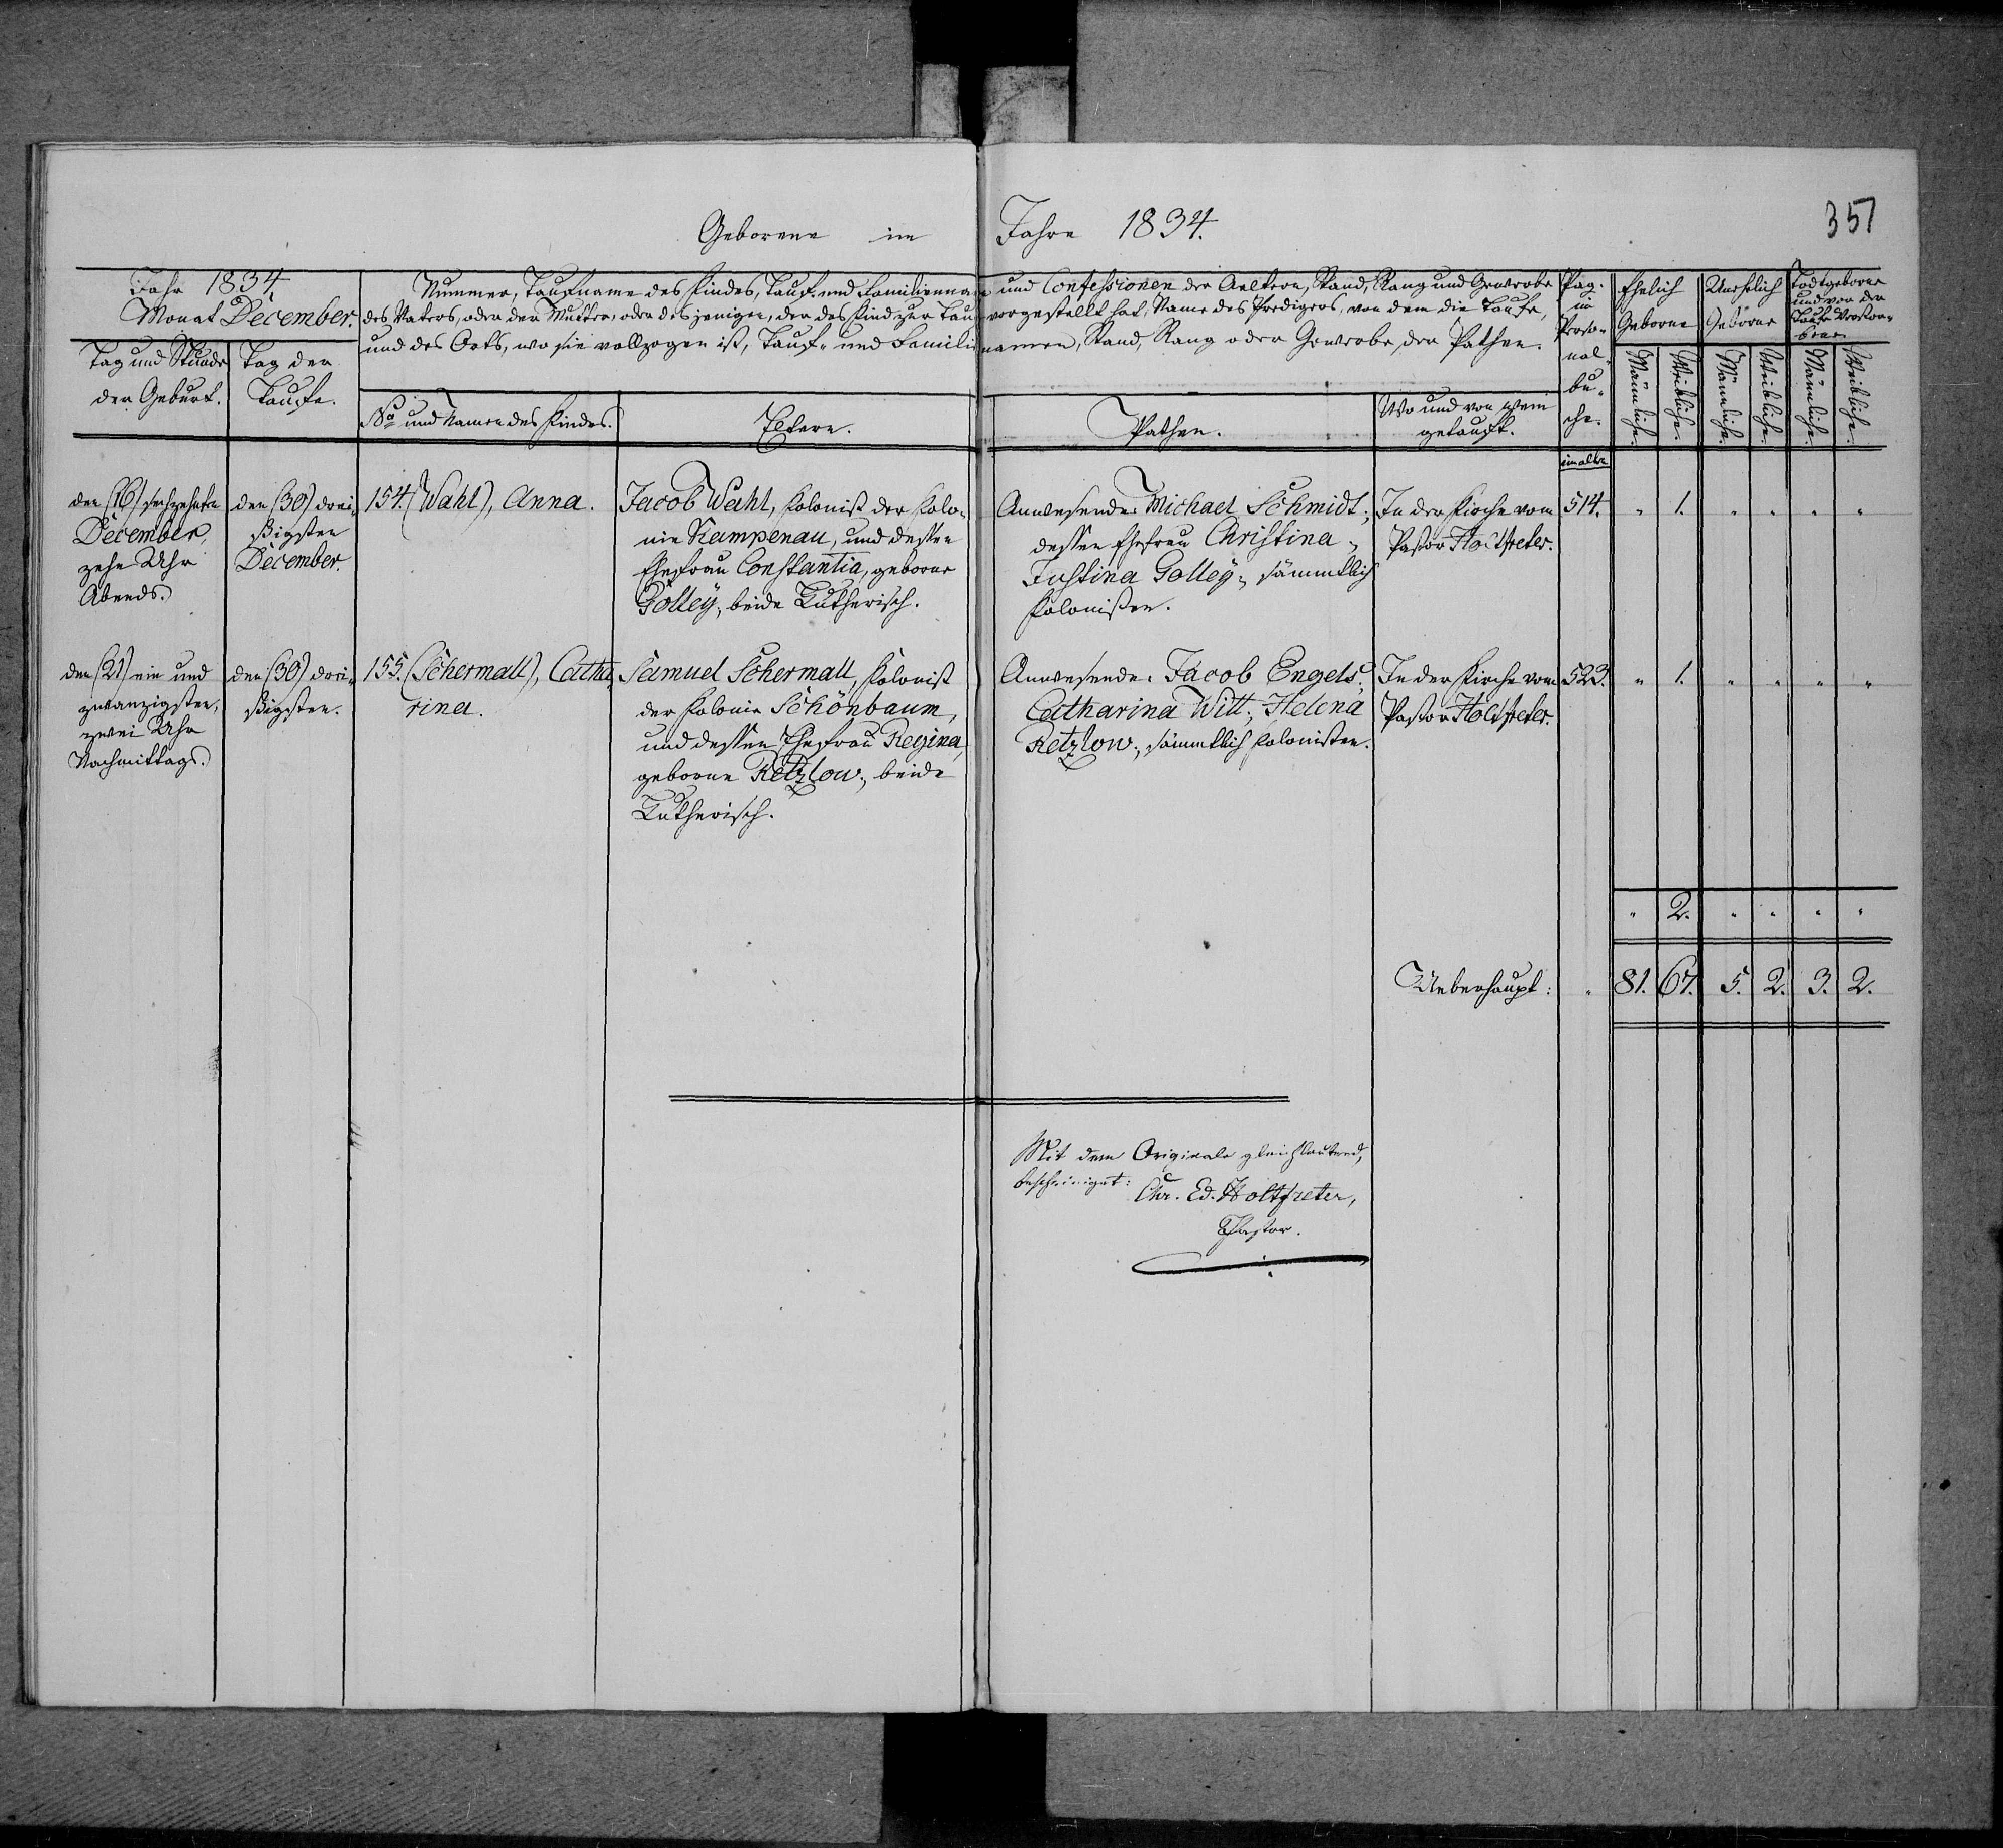 Geborene im Jahre 1834.
357
Jahr 1834,
Monat December.
Tag und Stunde
der Geburt.
Tag der
Taufe.
Nummer, Taufname des Kindes, Tauf- und Familienname und Confessionen der Aeltern, Stand, Rang und Gewerbe
des Vaters, oder der Mutter, oder desjenigen, der das Kind zur Taufe vorgestellt hat, Name des Predigers, von dem die Taufe,
und des Orts, wo sie vollzogen ist, Tauf- und Familiennamen, Stand, Rang oder Gewerbe, der Pathen.
No und Namen des Kindes.
Eltern.
Pathen.
Wo und von wem
getauft.
Pag.
im
Perso-
nal-
bu-
che.
Ehelich
Geborne
Unehelich
Geborne
Todtgeborne
und vor der
Taufe Verstor-
bene.
Männliche.
Weibliche.
Männliche.
Weibliche.
Männliche.
Weibliche.
den (16) sechzehnten
December,
zehn Uhr
Abends.
den (30) drei-
ßigsten
December.
154. (Wahl), Anna.
Jacob Wahl, Kolonist der Kolo-
nie Kampenau, und dessen
Ehefrau Constantia, geborne
Golley, beide Lutherisch.
Anwesende: Michael Schmidt;
dessen Ehefrau Christina;
Justina Golley; sämmtlich
Kolonisten.
In der Kirche vom
Pastor Holtfreter.
im alten
514. " 1. " " " "
den (21) ein und
zwanzigsten,
zwei Uhr
Nachmittags.
den (30) drei-
ßigsten.
155. (Schermall), Catha-
rina.
Samuel Schermall, Kolonist
der Kolonie Schönbaum,
und dessen Ehefrau Regina,
geborne Retzlow; beide
Lutherisch.
Anwesende: Jacob Engels;
Catharina Witt; Helena
Retzlow; sämmtlich Kolonisten.
In der Kirche vom
Pastor Holtfreter.
523. " 1. " " " "
" 2. " " " "
Ueberhaupt: " 81. 67. 5. 2. 3. 2.
Mit dem Originale gleichlautend,
bescheinigt: Chr. Ed. Holtfreter,
Pastor.